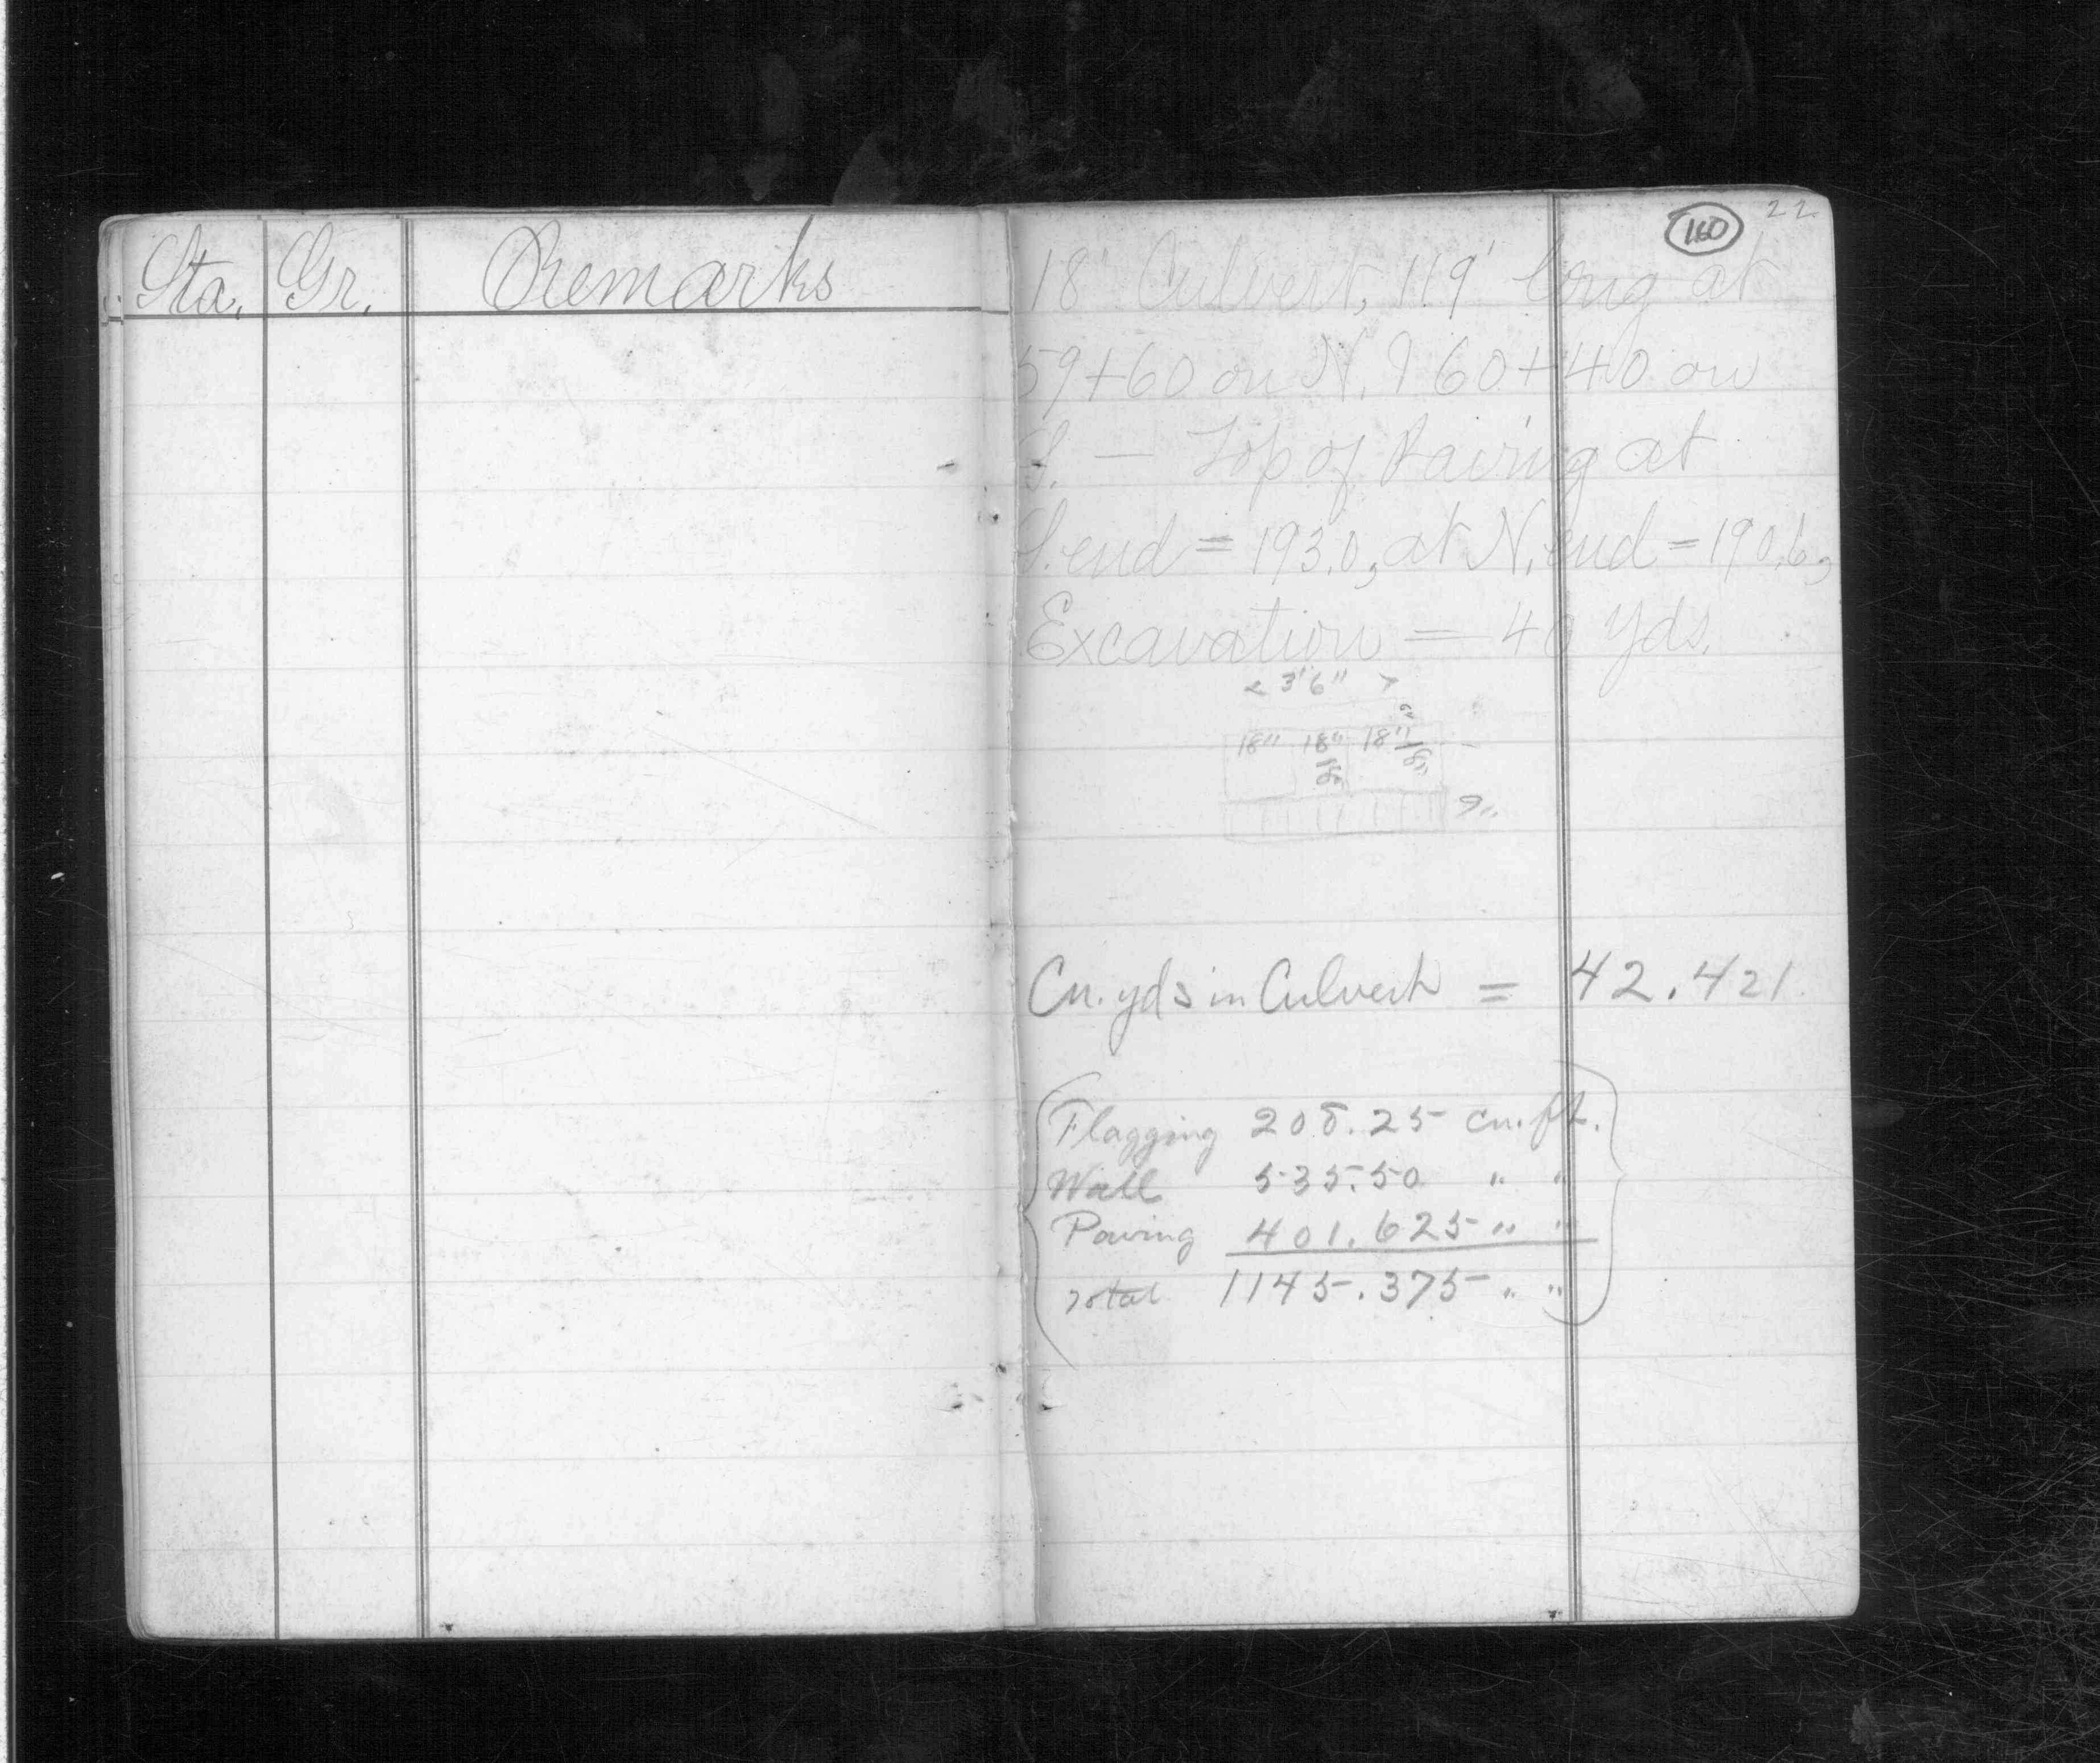 Sta. Gr. Remarks
160 22
18" Culvert, 119' long at
59+60 on N. & 60+40 on
S. — Top of Paving at
S. end = 193.0, at N. end = 190.6,
Excavation = 40 yds.
< 3'6" >
6"
18" 18" 18" 18"
18"
9"
Cu. yds in Culvert = 42.421
Flagging 208.25 cu. ft.
Wall 535.50 " "
Paving 401.625 " "
Total 1145.375 " "